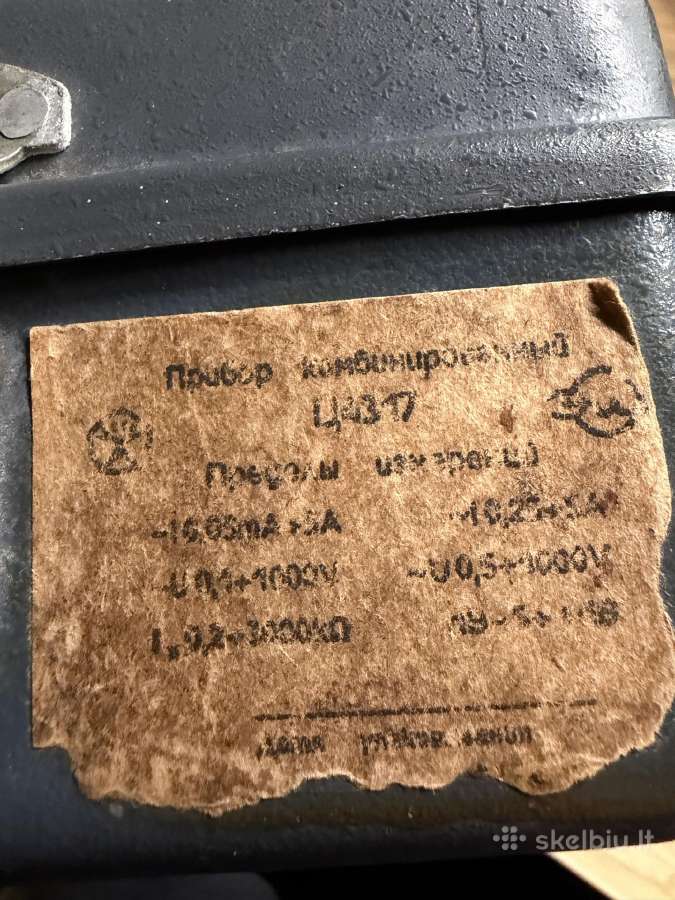 Прибор комбинированный
Ц4317
Пределы измерений
-I 0,05mA÷5A
-U 0,1÷1000V ~U 0,5÷1000V
0,2÷3000kΩ
Дата
skelbiu.lt